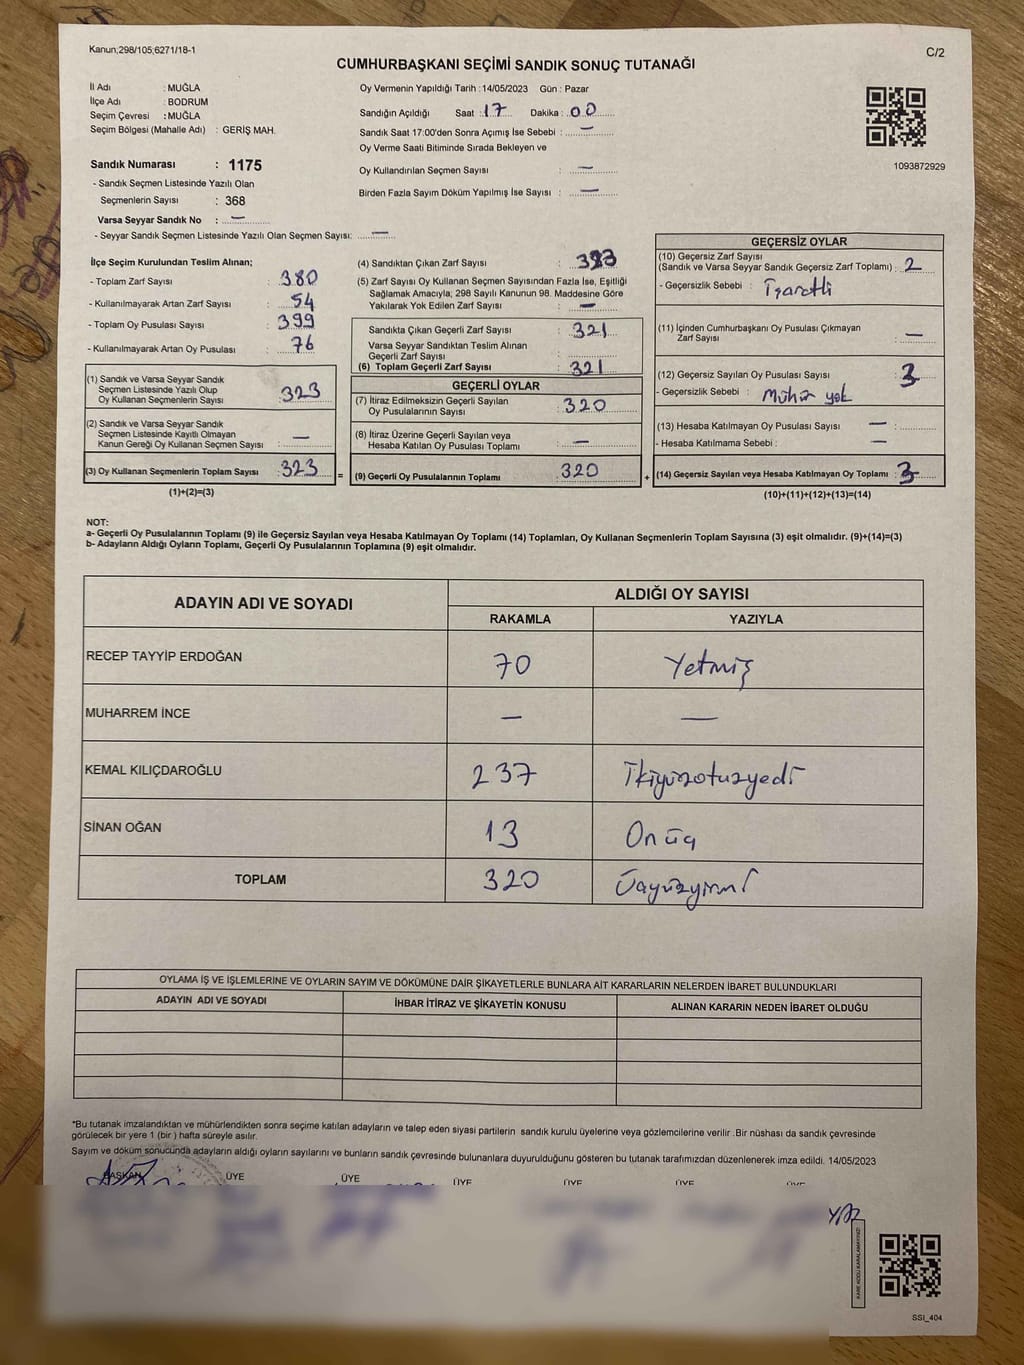 Kanun;298/105;6271/18-1
C/2
CUMHURBAŞKANI SEÇİMİ SANDIK SONUÇ TUTANAĞI
İl Adı : MUĞLA
İlçe Adı : BODRUM
Seçim Çevresi : MUĞLA
Seçim Bölgesi (Mahalle Adı) : GERİŞ MAH.
Sandık Numarası : 1175
- Sandık Seçmen Listesinde Yazılı Olan
Seçmenlerin Sayısı : 368
Varsa Seyyar Sandık No : —
- Seyyar Sandık Seçmen Listesinde Yazılı Olan Seçmen Sayısı: —
Oy Vermenin Yapıldığı Tarih : 14/05/2023 Gün : Pazar
Sandığın Açıldığı Saat : 17 Dakika : 00
Sandık Saat 17:00'den Sonra Açımış İse Sebebi : —
Oy Verme Saati Bitiminde Sırada Bekleyen ve
Oy Kullandırılan Seçmen Sayısı : —
Birden Fazla Sayım Döküm Yapılmış İse Sayısı : —
1093872929
İlçe Seçim Kurulundan Teslim Alınan;
- Toplam Zarf Sayısı : 380
- Kullanılmayarak Artan Zarf Sayısı : 54
- Toplam Oy Pusulası Sayısı : 399
- Kullanılmayarak Artan Oy Pusulası : 76
(1) Sandık ve Varsa Seyyar Sandık
Seçmen Listesinde Yazılı Olup
Oy Kullanan Seçmenlerin Sayısı : 323
(2) Sandık ve Varsa Seyyar Sandık
Seçmen Listesinde Kayıtlı Olmayan
Kanun Gereği Oy Kullanan Seçmen Sayısı : —
(3) Oy Kullanan Seçmenlerin Toplam Sayısı : 323 =
(1)+(2)=(3)
(4) Sandıktan Çıkan Zarf Sayısı : 323
(5) Zarf Sayısı Oy Kullanan Seçmen Sayısından Fazla İse, Eşitliği
Sağlamak Amacıyla; 298 Sayılı Kanunun 98. Maddesine Göre
Yakılarak Yok Edilen Zarf Sayısı : —
Sandıkta Çıkan Geçerli Zarf Sayısı : 321
Varsa Seyyar Sandıktan Teslim Alınan
Geçerli Zarf Sayısı :
(6) Toplam Geçerli Zarf Sayısı : 321
GEÇERLİ OYLAR
(7) İtiraz Edilmeksizin Geçerli Sayılan
Oy Pusulalarının Sayısı : 320
(8) İtiraz Üzerine Geçerli Sayılan veya
Hesaba Katılan Oy Pusulası Toplamı : —
(9) Geçerli Oy Pusulalarının Toplamı : 320 +
GEÇERSİZ OYLAR
(10) Geçersiz Zarf Sayısı
(Sandık ve Varsa Seyyar Sandık Geçersiz Zarf Toplamı) : 2
- Geçersizlik Sebebi : İşaretli
(11) İçinden Cumhurbaşkanı Oy Pusulası Çıkmayan
Zarf Sayısı : —
(12) Geçersiz Sayılan Oy Pusulası Sayısı : 3
- Geçersizlik Sebebi : Mühür yok
(13) Hesaba Katılmayan Oy Pusulası Sayısı : —
- Hesaba Katılmama Sebebi : —
(14) Geçersiz Sayılan veya Hesaba Katılmayan Oy Toplamı : 3
(10)+(11)+(12)+(13)=(14)
NOT:
a- Geçerli Oy Pusulalarının Toplamı (9) ile Geçersiz Sayılan veya Hesaba Katılmayan Oy Toplamı (14) Toplamları, Oy Kullanan Seçmenlerin Toplam Sayısına (3) eşit olmalıdır. (9)+(14)=(3)
b- Adayların Aldığı Oyların Toplamı, Geçerli Oy Pusulalarının Toplamına (9) eşit olmalıdır.
ADAYIN ADI VE SOYADI
ALDIĞI OY SAYISI
RAKAMLA YAZIYLA
RECEP TAYYİP ERDOĞAN 70 Yetmiş
MUHARREM İNCE — —
KEMAL KILIÇDAROĞLU 237 İkiyüzotuzyedi
SİNAN OĞAN 13 Onüç
TOPLAM 320 Üçyüzyirmi
OYLAMA İŞ VE İŞLEMLERİNE VE OYLARIN SAYIM VE DÖKÜMÜNE DAİR ŞİKAYETLERLE BUNLARA AİT KARARLARIN NELERDEN İBARET BULUNDUKLARI
ADAYIN ADI VE SOYADI İHBAR İTİRAZ VE ŞİKAYETİN KONUSU ALINAN KARARIN NEDEN İBARET OLDUĞU
*Bu tutanak imzalandıktan ve mühürlendikten sonra seçime katılan adayların ve talep eden siyasi partilerin sandık kurulu üyelerine veya gözlemcilerine verilir .Bir nüshası da sandık çevresinde
görülecek bir yere 1 (bir ) hafta süreyle asılır.
Sayım ve döküm sonucunda adayların aldığı oyların sayılarını ve bunların sandık çevresinde bulunanlara duyurulduğunu gösteren bu tutanak tarafımızdan düzenlenerek imza edildi. 14/05/2023
BAŞKAN ÜYE ÜYE ÜYE ÜYE ÜYE ÜYE
KARE KODU KARALAMAYINIZ!
SSI_404